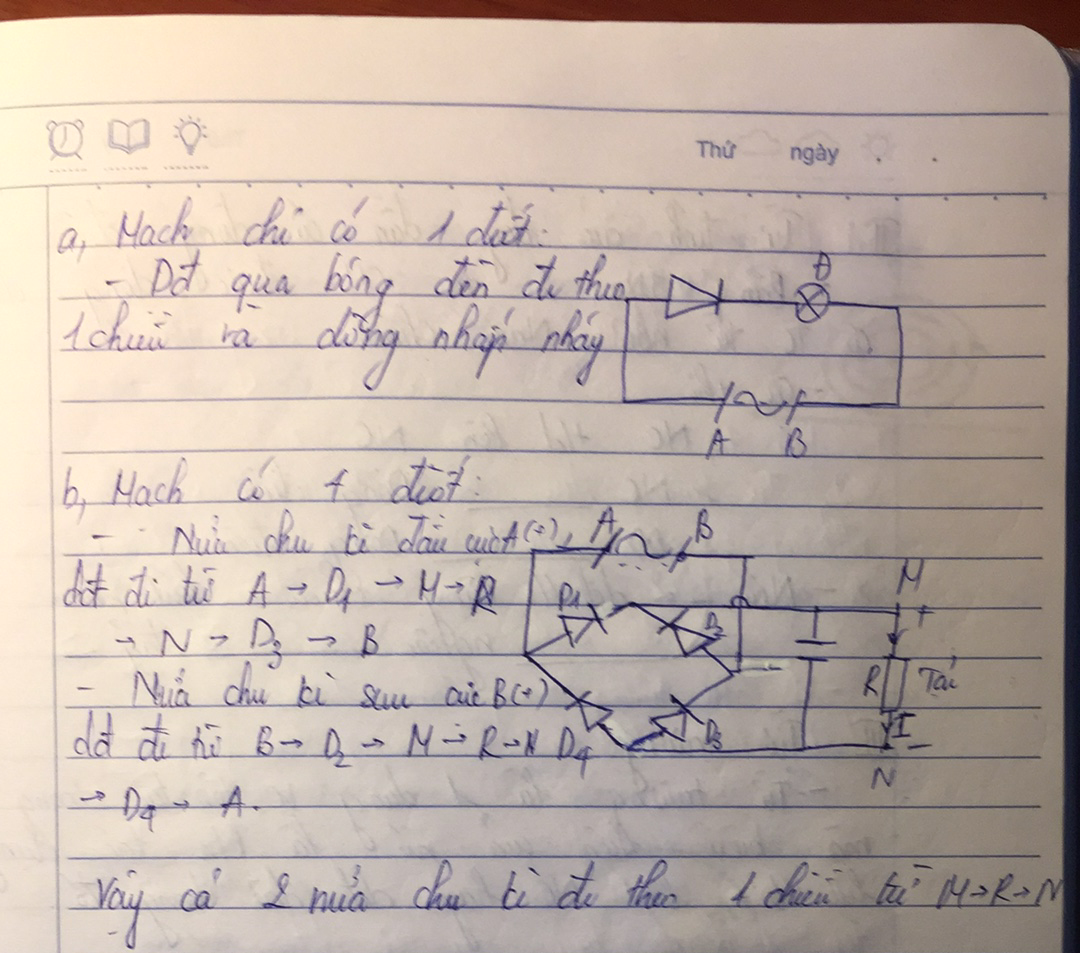 Thứ ngày . .
a, Mạch chỉ có 1 điốt:
- Dđ qua bóng đèn đi theo
1 chiều và dòng nhấp nháy
Đ
A B
b, Mạch có 4 điốt:
- Nửa chu kì đầu cực A(+),
A B
dđ đi từ A → D1 → M → R
D1 D2 M +
→ N → D3 → B
- Nửa chu kì sau cực B(+)
R Tải
dđ đi từ B → D2 → M → R → N
D4 D3 I -
N
→ D4 → A.
Vậy cả 2 nửa chu kì đi theo 1 chiều từ M → R → N